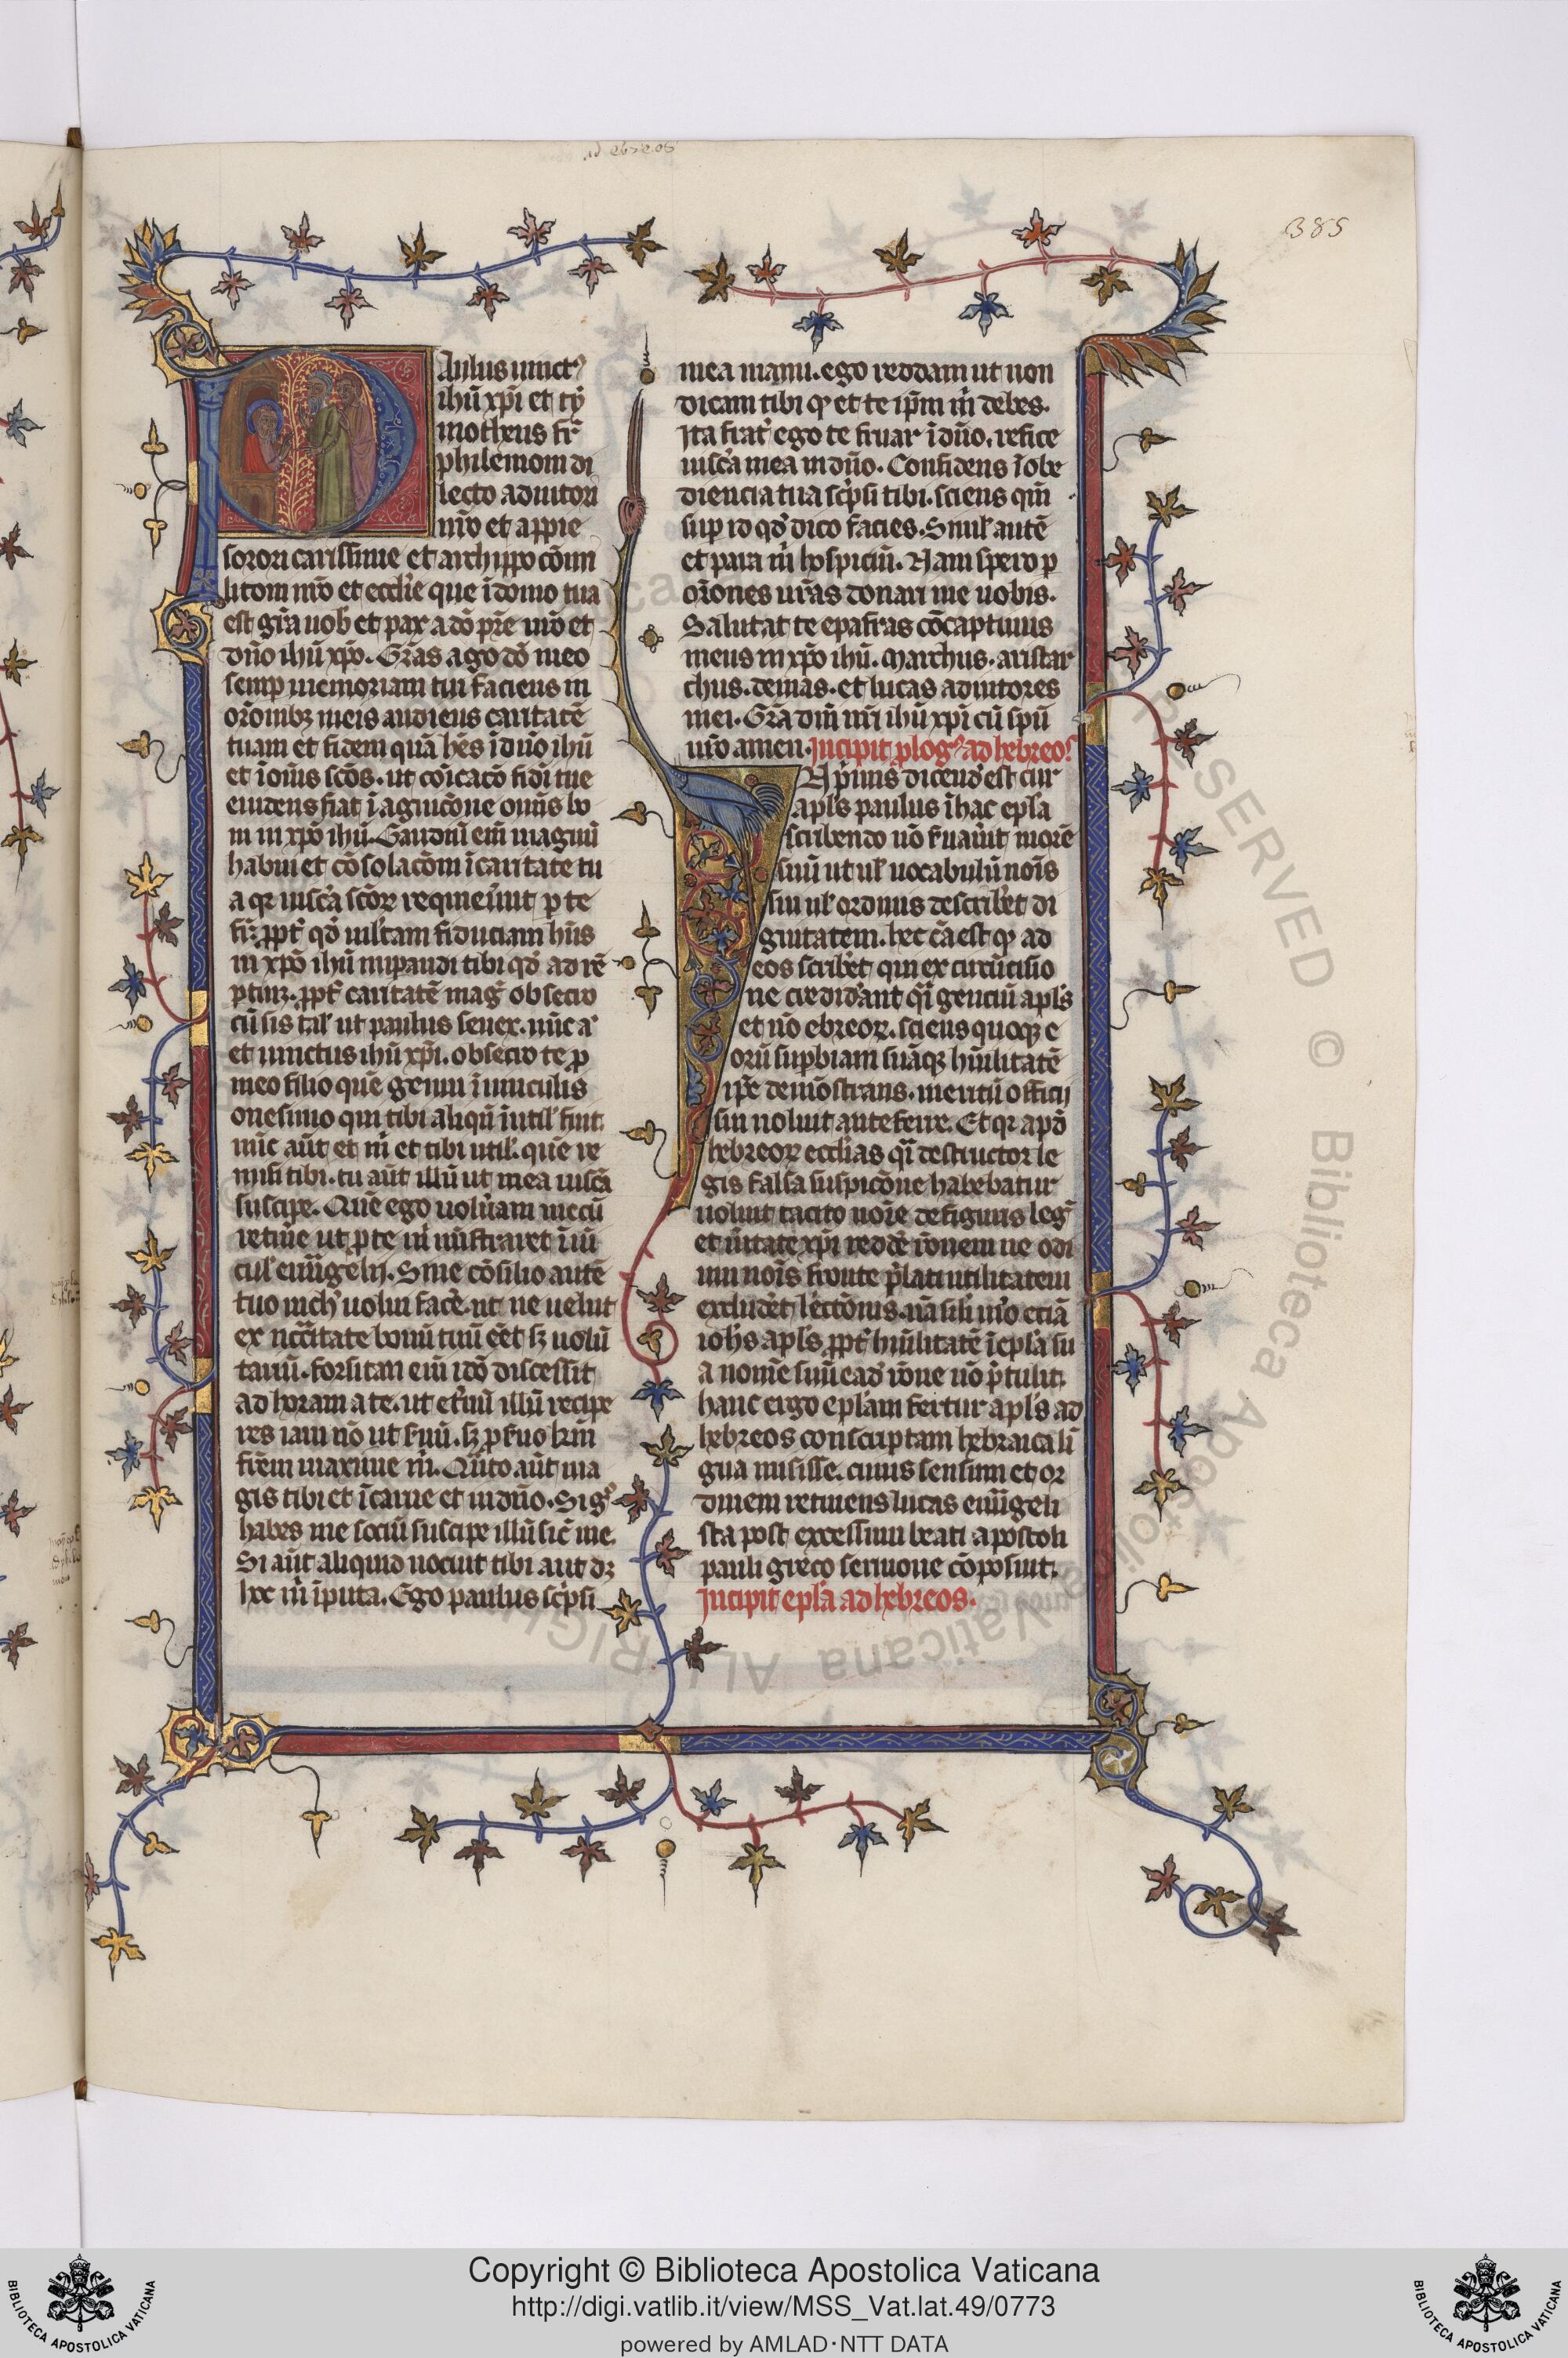 ad ebreos
385
Aulus uinctꝰ
ihū xp̄i et ty
motheus fr̄
philemoni di
lecto adiutori
nr̄o et appie
sorori carissime et archippo cōmi
litoni nr̄o et ecclīe que ī domo tua
est gr̄a uob̄ et pax a dō pr̄e nr̄o et
dn̄o ihū xp̄o. Gr̄as ago dō meo
semp memoriam tui faciens in
or̄onibꝫ meis audiens caritatē
tuam et fidem quā hēs ī dn̄o ihū
et ī om̄s scōs. ut cōicacō fidi tue
euidens fiat ī agnicōne omīs bo
ni in xp̄o ihū. Gaudiū em̄ magnū
habui et cōsolacōm ī caritate tu
a qr uiscā scōꝝ requieuīt p te
fr̄. ppt̄ qd̄ ml̄tam fiduciam hn̄s
in xp̄o ihū impandi tibi qd̄ ad rē
ptinꝫ. ppt̄ caritatē mag̓ obsecro
cū sis tal̓ ut paulus senex. nūc a̓
et uinctus ihū xp̄i. obsecro te p
meo filio quē genui ī uinculis
onesimo qui tibi aliqn̄ īutil̓ fuit.
nūc aūt et m̄ et tibi util̓. quē re
misi tibi. tu aūt illū ut mea uiscā
suscipe. Quē ego uolūam mecū
retinē ut p te m̄ mīstraret ī uī
cul̓ euūgelij. Sine cōsilio autē
tuo nich̓ uolui facē. ut ne uelut
ex nccītate bonū tuū eēt sꝫ uolū
tariū. Forsitan em̄ idō discessit
ad horam a te. ut et̓nū illū recipe
res iam nō ut suū. sꝫ p suo km̄
frēm maxime m̄. Quāto aūt ma
gis tibi et ī carne et in dn̄o. Si gͦ
habes me sociū suscipe illū sic̄ me.
Si aūt aliquid nocuit tibi aut dꝫ
hoc m̄ īputa. Ego paulus sc̓psi
mea manu. ego reddam ut non
dicam tibi ꝙ et te ip̄m m̄ debes.
Ita frat̓ ego te fruar ī dn̄o. refice
uiscā mea in dn̄o. Confidens ī obe
diencia tua sc̓psi tibi. sciens qm̄
sup id qd̓ dico facies. Simul̓ autē
et para m̄ hospiciū. Nam spero p
or̄ones ur̄as donari me uobis.
Salutat te epafras cōcaptiuus
meus in xp̄o ihū. Marchus. aristar
chus. demas. et lucas adiutores
mei. Gr̄a dn̄i nr̄i ihū xp̄i cū spū
ur̄o amen. Incipit plogꝰ ad hebreos.
N p̓mis dicend̓ est cur
apl̄s paulus ī hac epl̄a
scribendo nō suau̓it morē
suū ut ul̓ uocabulū noīs
sui ul̓ ordinis describet̓ di
gnitatem. hec cā est ꝙ ad
eos scribēt qui ex circūcisio
ne credid̓ant qͣi genciū apl̄s
et nō ebreoꝝ. sciens quoqꝫ e
orū supbiam suāqꝫ hūilitatē
ip̄e demōstrans. meritū officij
sui noluit anteferre. Et qr apd̓
hebreoꝝ ecclīas qͣi destructor le
gis falsa suspicōne habebatur
uoluit tacito noīe de figuris leg̓
et ūitate xp̄i reddē rōnem ne odi
um noīs fronte p̓lati utilitatem
excludēt lectōnis. nā sil̓i mō eciā
ioh̄s apl̄s ppt̄ hūilitatē ī epl̄a su
a nomē suū ead̓ rōne nō p̓tulit.
hanc ergo epl̄am fertur apl̄s ad
hebreos conscriptam hebraica lī
gua misisse. cuius sensum et or
dinem retinens lucas euūgeli
sta post excessum beati apostoli
pauli greco sermone cōposuit.
Incipit epl̄a ad hebreos.
RESERVED © Biblioteca Apostolica Vaticana ALL RIGHTS
Copyright © Biblioteca Apostolica Vaticana
http://digi.vatlib.it/view/MSS_Vat.lat.49/0773
powered by AMLAD·NTT DATA
BIBLIOTECA APOSTOLICA VATICANA
BIBLIOTECA APOSTOLICA VATICANA